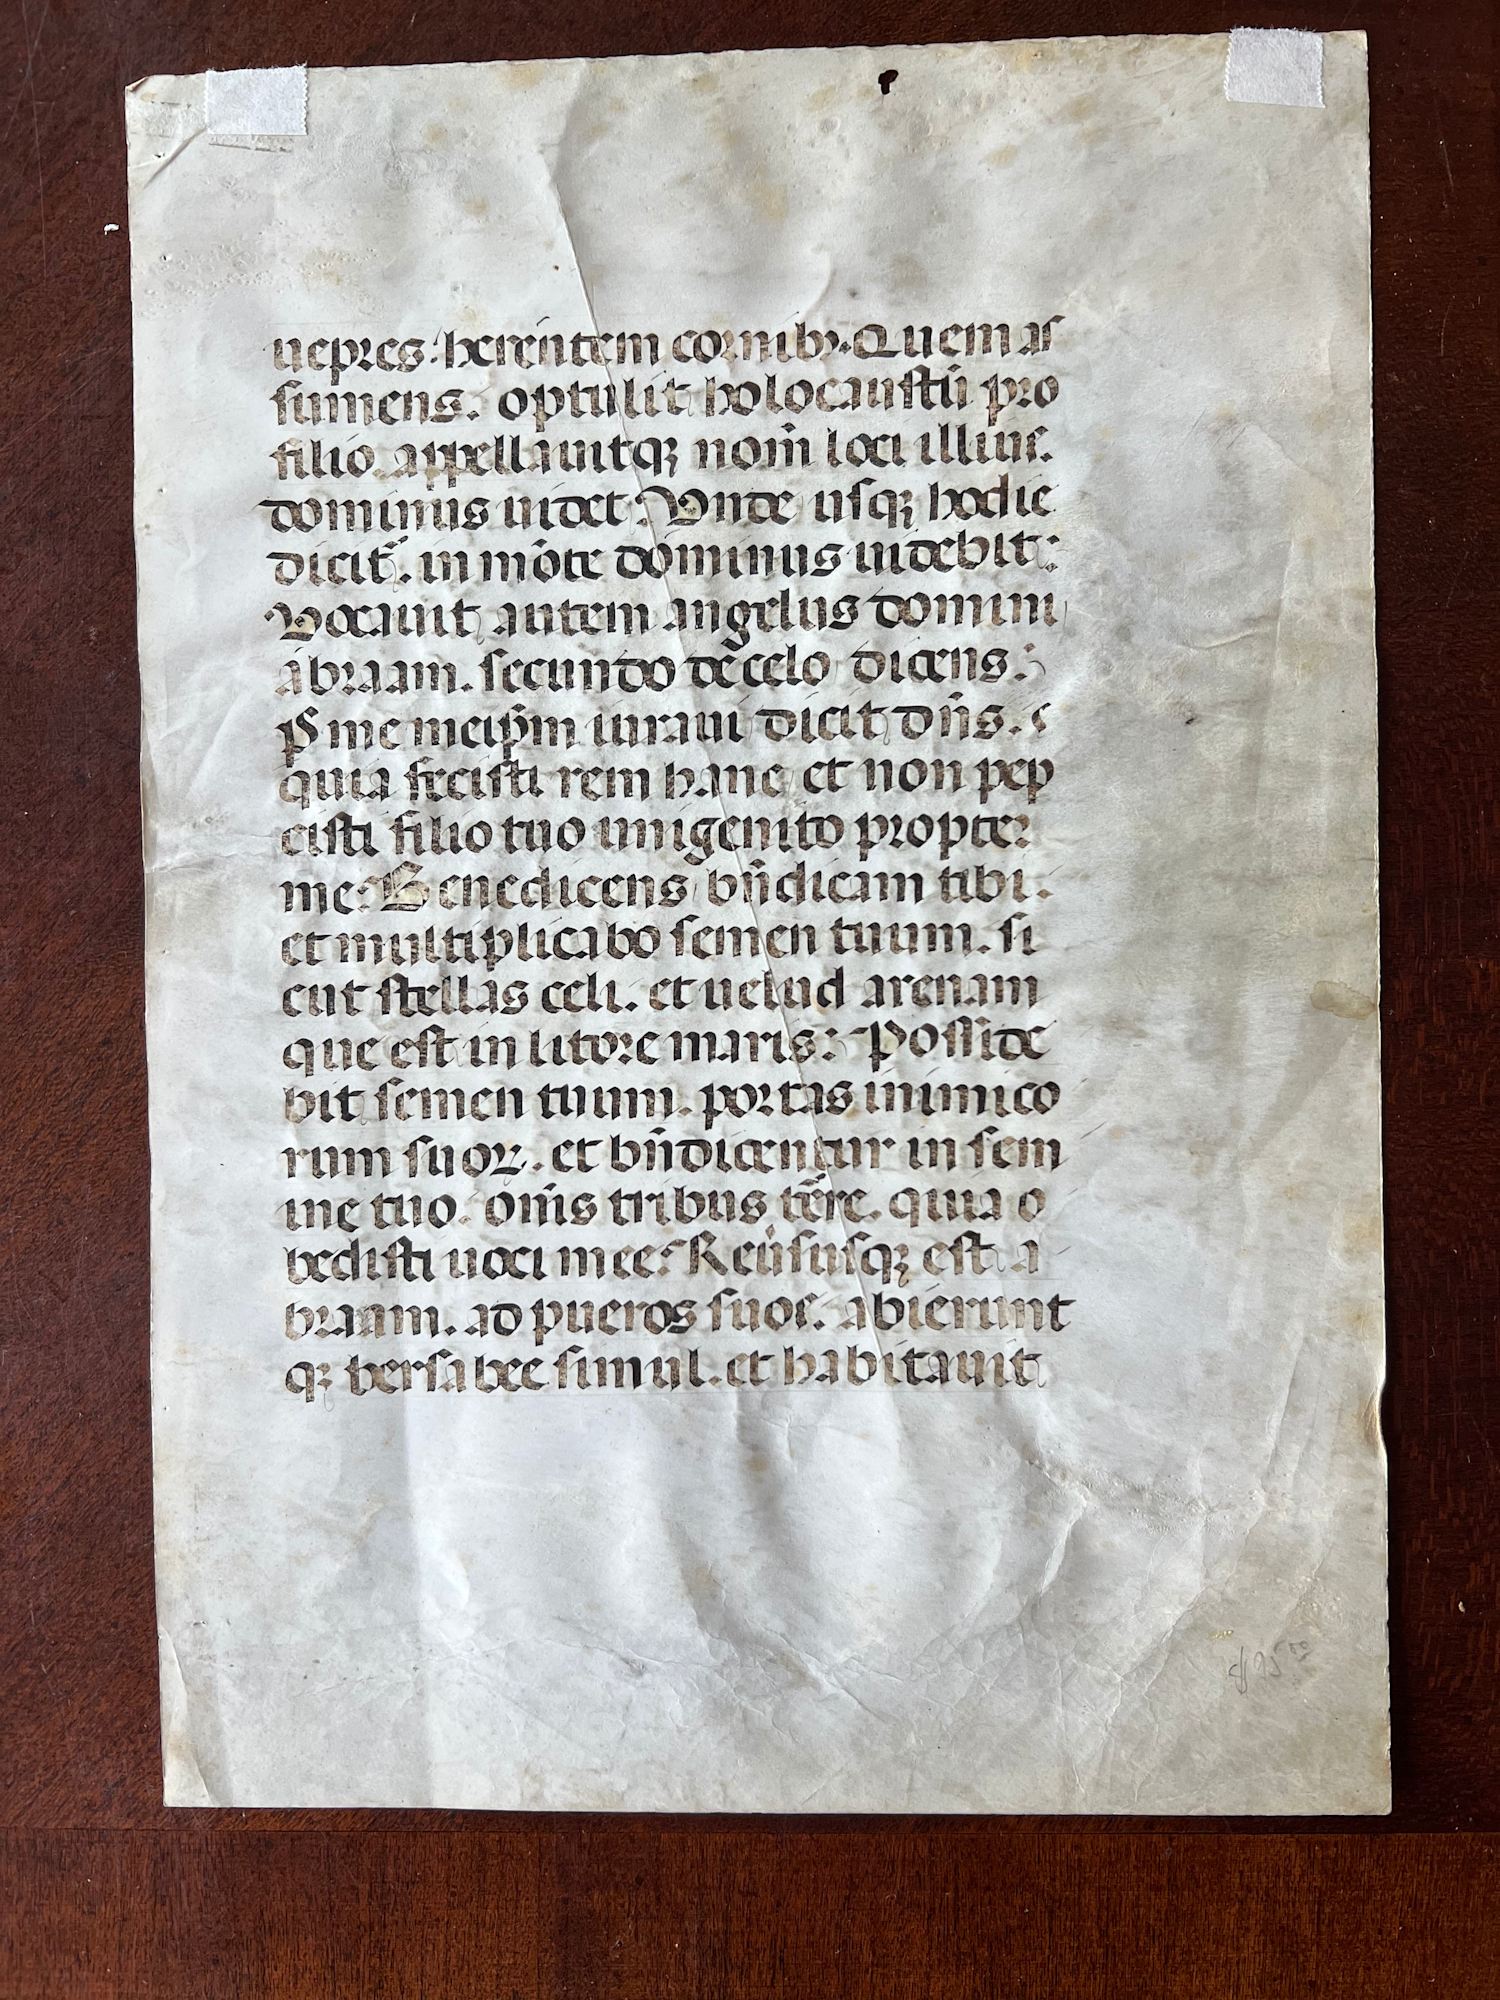 uepres. herentem cornibꝫ. Quem as
sumens. optulit holocaustū pro
filio. appellauitqꝫ nom̄ loci illius.
dominus uidet: Vnde usqꝫ hodie
dicit᷑. in mōte dominus uidebit:
Vocauit autem angelus domini
abraam. secundo de celo dicens:
ꝑ me meip̄m iuraui dicit dn̄s.
quia fecisti rem hanc et non pep
cisti filio tuo unigenito propter
me: Benedicens bn̄dicam tibi.
et multiplicabo semen tuum. si
cut stellas celi. et uelud arenam
que est in litore maris: Posside
bit semen tuum. portas inimico
rum suoꝝ. et bn̄dicentur in sem
ine tuo. om̄s tribus terre. quia o
bedisti uoci mee: Reūsusqꝫ est a
braam. ad pueros suos. abierunt
qꝫ bersabee simul. et habitauit